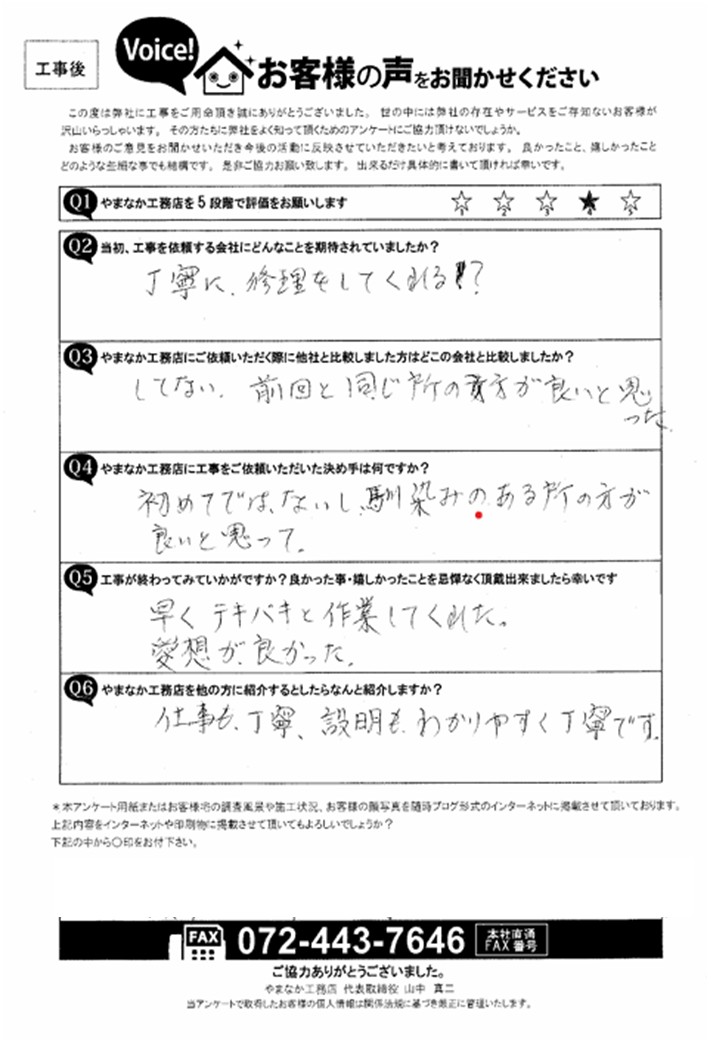 工事後
Voice!
お客様の声をお聞かせください
この度は弊社に工事をご用命頂き誠にありがとうございました。 世の中には弊社の存在やサービスをご存知ないお客様が
沢山いらっしゃいます。 その方たちに弊社をよく知って頂くためのアンケートにご協力頂けないでしょうか。
お客様のご意見をお聞かせいただき今後の活動に反映させていただきたいと考えております。 良かったこと、嬉しかったこと
どのような些細な事でも結構です。 是非ご協力お願い致します。 出来るだけ具体的に書いて頂ければ幸いです。
Q1 やまなか工務店を5段階で評価をお願いします ☆1 ☆2 ☆3 ★4 ☆5
Q2 当初、工事を依頼する会社にどんなことを期待されていましたか?
丁寧に、修理をしてくれる?
Q3 やまなか工務店にご依頼いただく際に他社と比較しました方はどこの会社と比較しましたか?
してない. 前回と同じ所の方が良いと思
った.
Q4 やまなか工務店に工事をご依頼いただいた決め手は何ですか?
初めてでは、ないし、馴染みのある所の方が
良いと思って.
Q5 工事が終わってみていかがですか?良かった事・嬉しかったことを忌憚なく頂戴出来ましたら幸いです
早くテキパキと作業してくれた。
愛想が良かった.
Q6 やまなか工務店を他の方に紹介するとしたらなんと紹介しますか?
仕事も、丁寧、説明も、わかりやすく丁寧です.
*本アンケート用紙またはお客様宅の調査風景や施工状況、お客様の顔写真を随時ブログ形式のインターネットに掲載させて頂いております。
上記内容をインターネットや印刷物に掲載させて頂いてもよろしいでしょうか?
下記の中から○印をお付下さい。
FAX 072-443-7646 本社直通
FAX番号
ご協力ありがとうございました。
やまなか工務店 代表取締役 山中 真二
当アンケートで取得したお客様の個人情報は関係法規に基づき厳正に管理いたします。